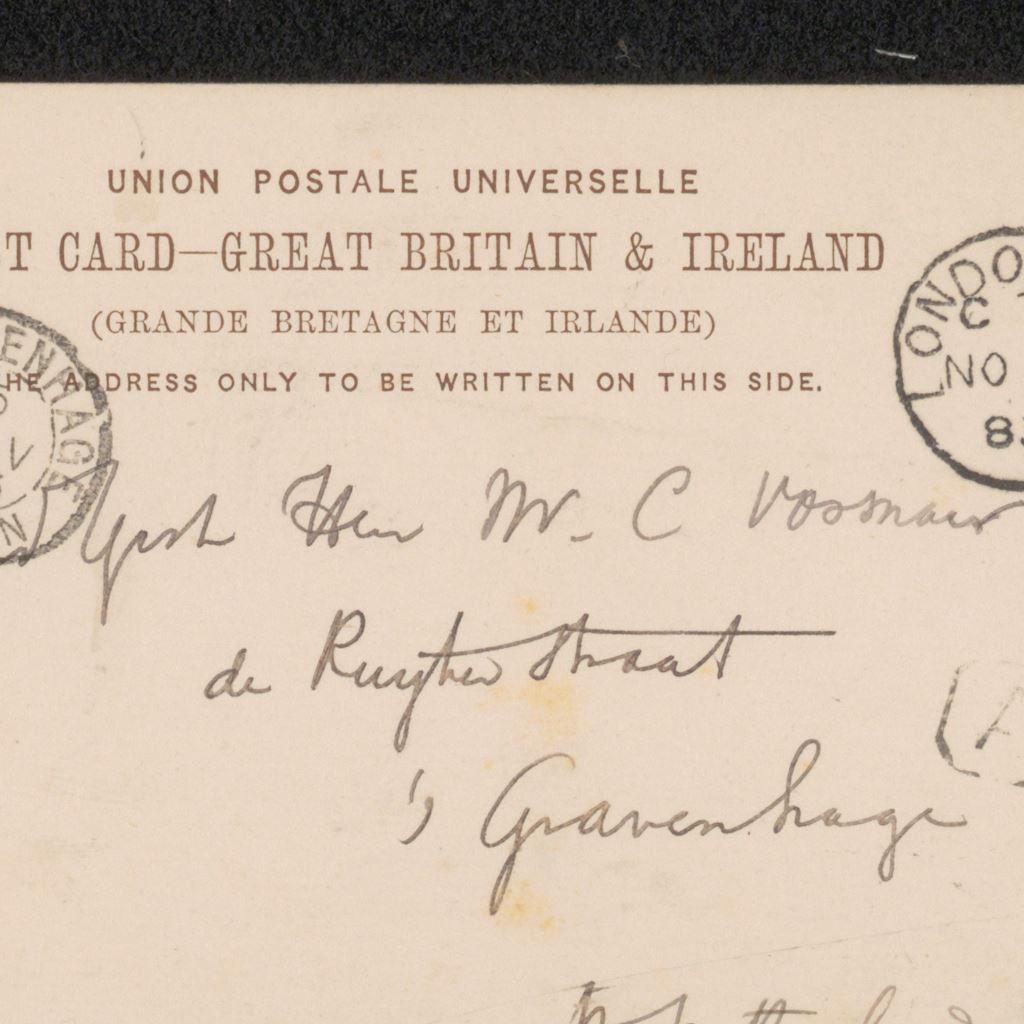 UNION POSTALE UNIVERSELLE
T CARD—GREAT BRITAIN & IRELAND
(GRANDE BRETAGNE ET IRLANDE)
HE ADDRESS ONLY TO BE WRITTEN ON THIS SIDE.
LONDO
C
NO
83
ENHAGE
V
N
Heer Mr. C Vosmaer
de Ruyter Straat
's Gravenhage